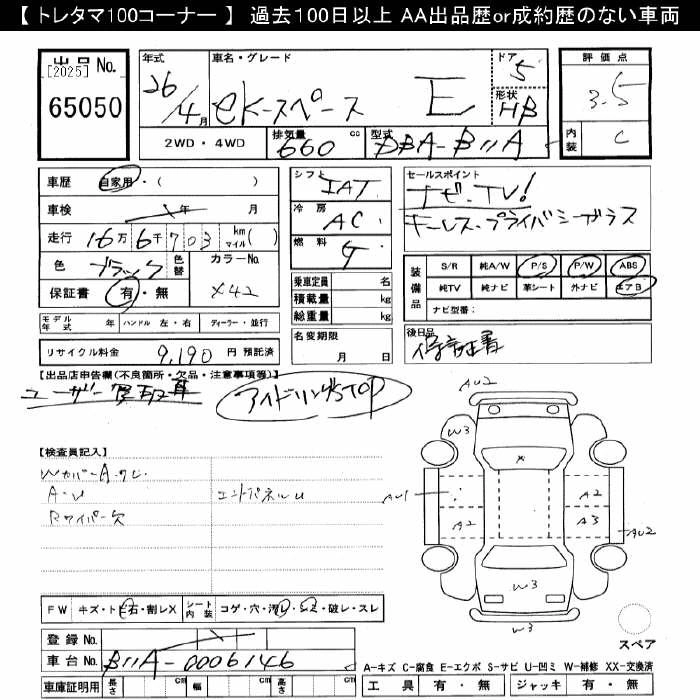 【 トレタマ100コーナー 】 過去100日以上 AA出品歴or成約歴のない車両
出品No.
[2025]
65050
年式
26/4月
車名・グレード
eKスペース E
ドア
5
形状
HB
評価点
3.5
内装
C
2WD・4WD
排気量
660 cc
型式
DBA-B11A
車歴
自家用・( )
車検
年 月
走行
16万6千703 km マイル( )
色
ブラック
色替
カラーNo.
X42
保証書
有・無
シフト
IAT
冷房
AC
燃料
G
乗車定員 名
積載量 kg
総重量 kg
セールスポイント
ナビ・TV!
キーレス・プライバシーガラス
装備品
S/R 純A/W P/S P/W ABS
純TV 純ナビ 革シート 外ナビ エアB
ナビ型番:
モデル年式 年 ハンドル 左・右 ディーラー・並行
リサイクル料金 9,190 円 預託済
名変期限
月 日
後日品
保証書
【出品店申告欄(不良箇所・欠品・注意事項等)】
ユーザー買取車
アイドリングSTOP
【検査員記入】
WカバーA
A・U
エンドパネルU
Rワイパー欠
FW キズ・トビ石・割レX
シート内装 コゲ・穴・汚レ・シミ・破レ・スレ
登録No.
車台No. B11A-0006146
車庫証明用 長さ cm 幅 cm 高さ cm
AU2
W3
X
AU1
A2
A2
A3
AU2
W3
W3
スペア
A-キズ C-腐食 E-エクボ S-サビ U-凹ミ W-補修 XX-交換済
工具 有・無 ジャッキ 有・無